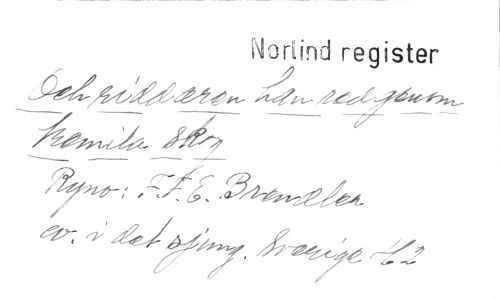 Norlind register
Och riddaren han red genom
hemila skog
Ryno: F.F.E. Brendler
ev. i det sjung. Sverige H2